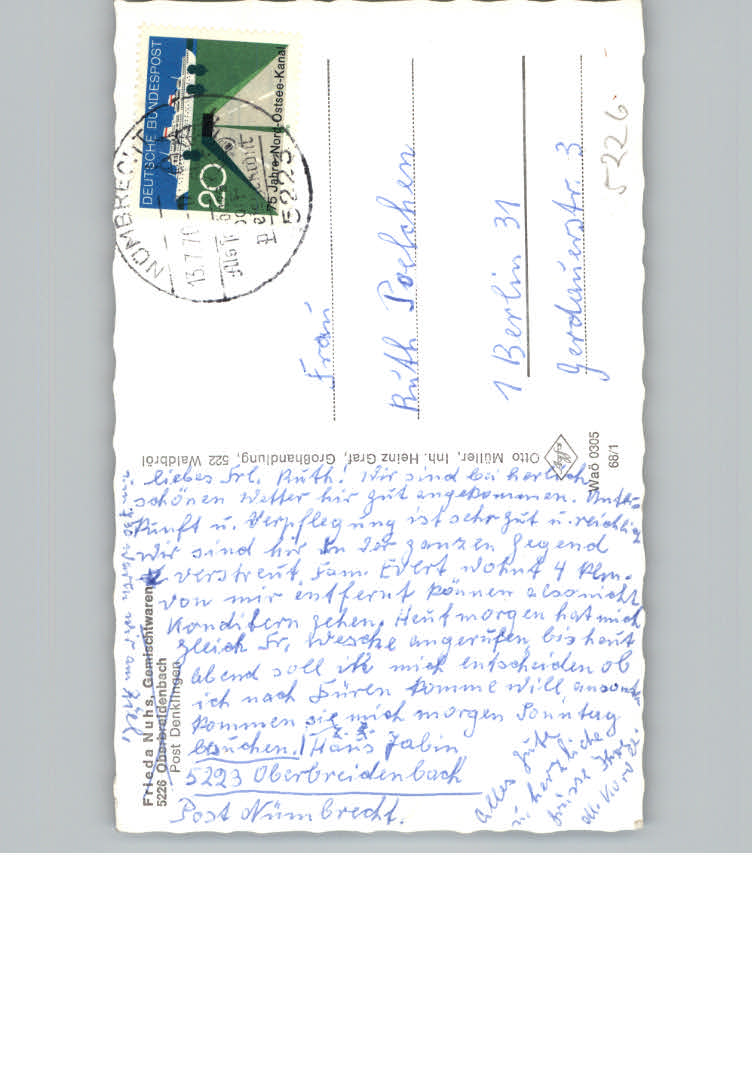 DEUTSCHE BUNDESPOST
20
75 Jahre Nord-Ostsee-Kanal
NÜMBRECHT
13.7.70
5223
5226
Frau
Ruth Poelchen
1 Berlin 31
Gerdauerstr. 3
Otto Müller, Inh. Heinz Graf, Großhandlung, 522 Waldbröl
Agfa
Waö 0305
68/1
liebes Frl. Ruth! Wir sind bei herrlich
schönen Wetter hir gut angekommen. Unter-
kunft u. Verpflegung ist sehr gut u. reichlich
wir sind hir in der ganzen Gegend
verstreut Fam. Evert wohnt 4 klm.
von mir entfernt können also nicht
Konditern gehen. Heut morgen hat mich
gleich Fr. Wesche angerufen bis heut
abend soll ich mich entscheiden ob
ich nach Düren komme will ansonsten
kommen sie mich morgen Sonntag
besuchen. Haus Jabin
5223 Oberbreidenbach
Post Nümbrecht.
alles Gute
u. herzliche
Grüsse Ihre
wir am Ziel.
Frieda Nuhs, Gemischtwaren
5226 Oberbreidenbach
Post Denklingen